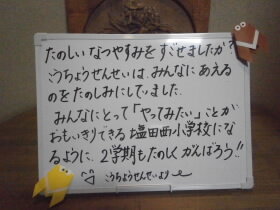 たのしいなつやすみをすごせましたか？
こうちょうせんせいは、みんなにあえる
のをたのしみにしていました。
みんなにとって「やってみたい」ことが
おもいきりできる塩田西小学校にな
るように、２学期もたのしくがんばろう!!
こうちょうせんせいより